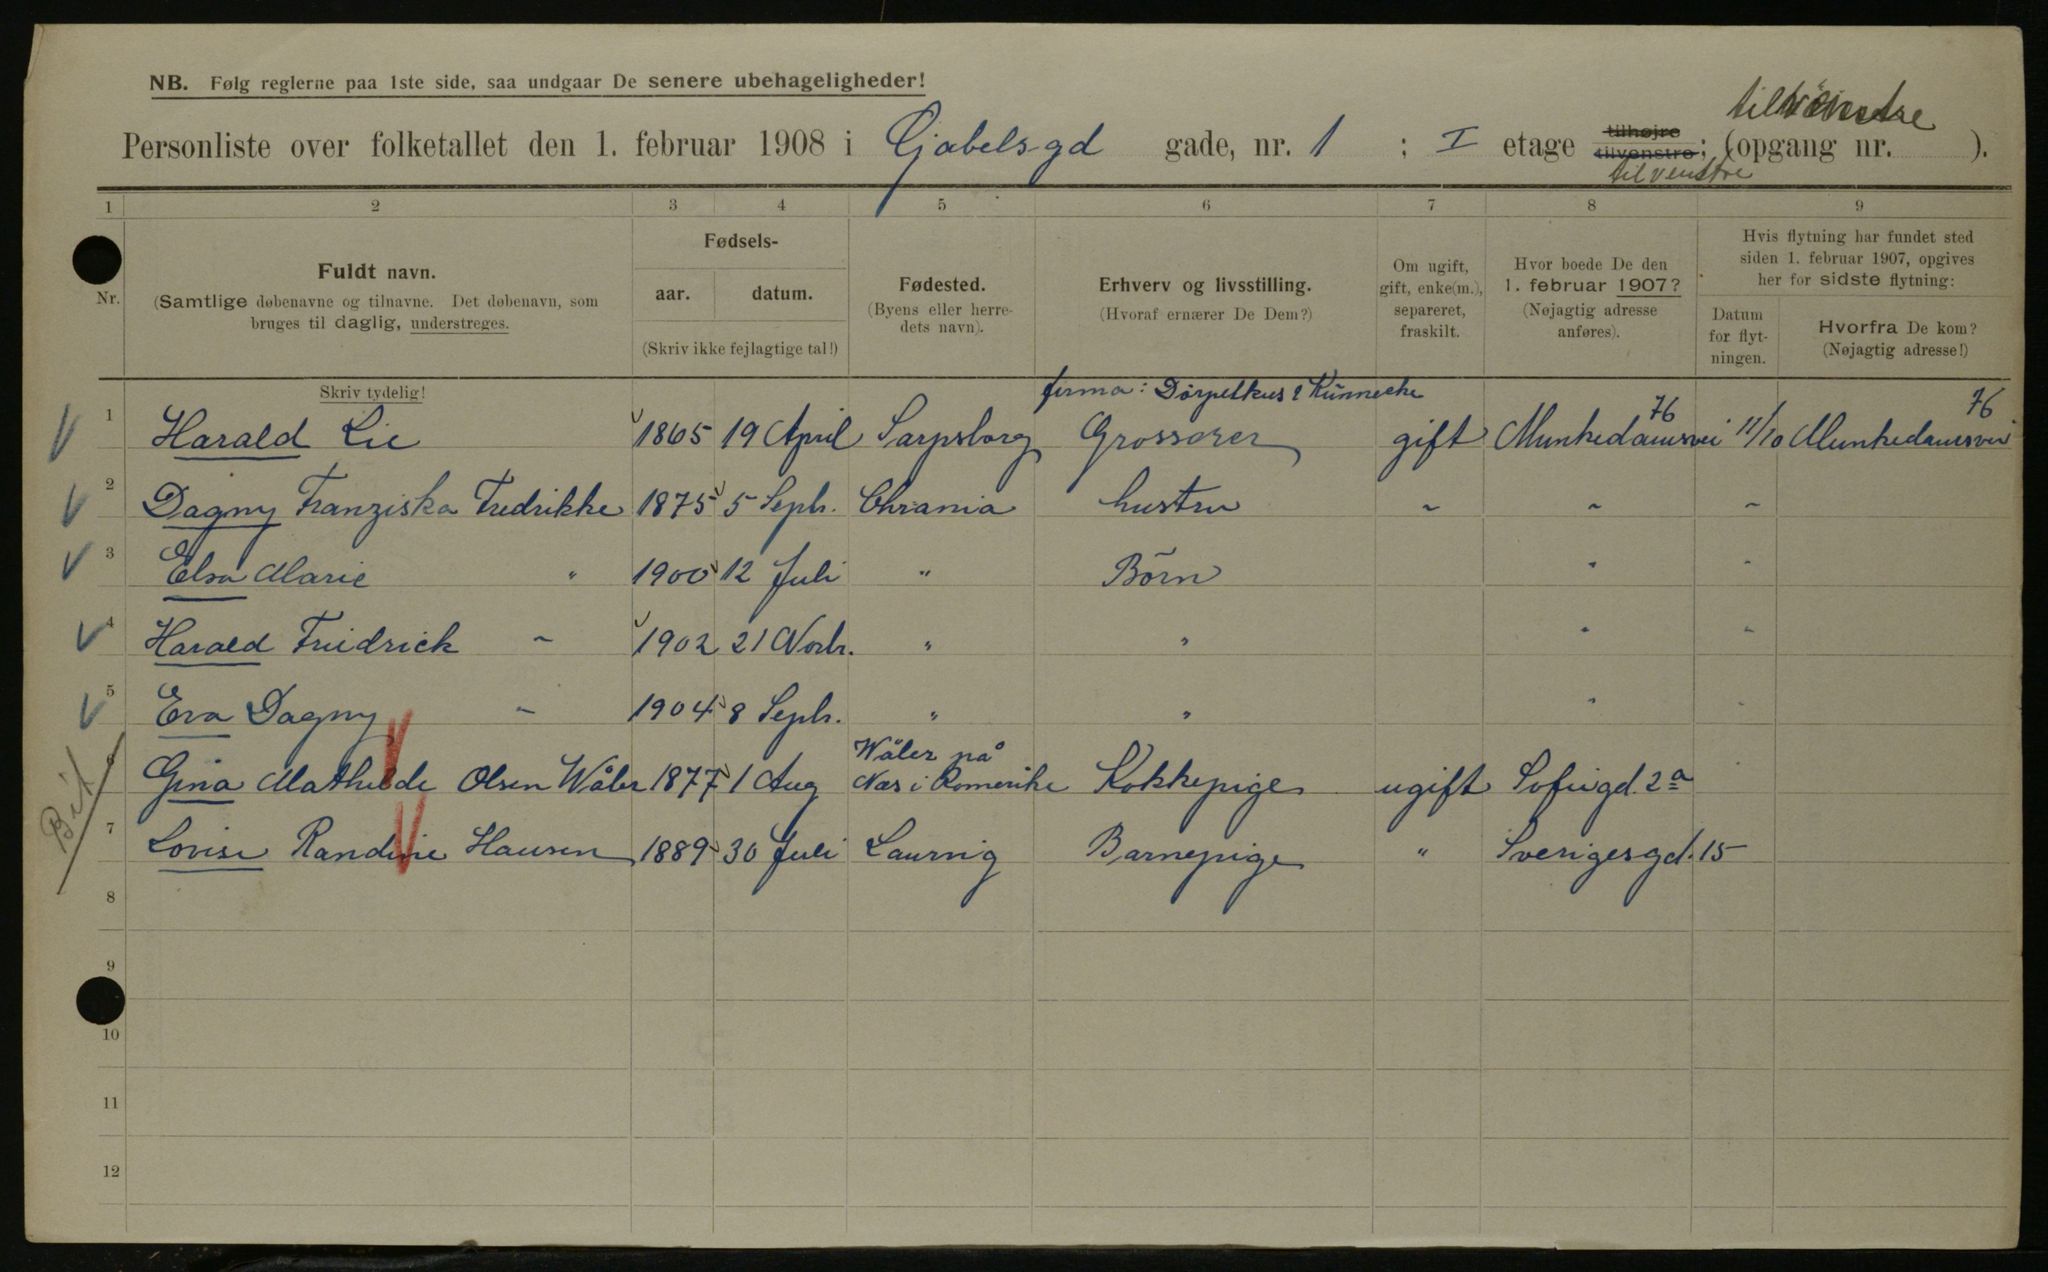 NB. Følg reglerne paa 1ste side, saa undgaar De senere ubehageligheder!
tilvenstre
Personliste over folketallet den 1. februar 1908 i Gjøbels-gd gade, nr. 1 ; I etage tilhøjre tilvenstre; (opgang nr. ).
tilvenstre
1 2 3 4 5 6 7 8 9
Nr.
Fuldt navn.
(Samtlige døbenavne og tilnavne. Det døbenavn, som
bruges til daglig, understreges.
Skriv tydelig!
Fødsels-
aar. datum.
(Skriv ikke fejlagtige tal!)
Fødested.
(Byens eller herre-
dets navn).
Erhverv og livsstilling.
(Hvoraf ernærer De Dem?)
Om ugift,
gift, enke(m.),
separeret,
fraskilt.
Hvor boede De den
1. februar 1907?
(Nøjagtig adresse
anføres).
Hvis flytning har fundet sted
siden 1. februar 1907, opgives
her for sidste flytning:
Datum
for flyt-
ningen.
Hvorfra De kom?
(Nøjagtig adresse!)
firma: Künnecke
1 Harald Lie 1865 19 April Sarpsborg Grosserer gift Munkedamsvei 76 11/10 Munkedamsvei 76
2 Dagny Franziska Fredrikke 1875 5 Sepbr. Chrania hustru " " "
3 Elsa Marie " 1900 12 Juli " Börn " "
4 Harald Friedrich " 1902 21 Novbr. " " " "
5 Eva Dagny " 1904 8 Sepbr. " " " "
6 Gina Mathilde Olsen Wåler 1877 1 Aug Wåler på Næs i Romerike Kokkepige ugift Sofiegd. 2a
7 Lovise Randine Hansen 1889 30 Juli Laurvig Barnepige " Sverigesgd. 15
8
9
10
11
12